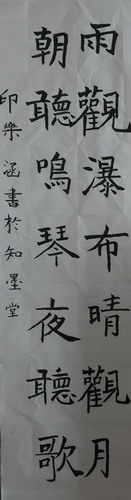 雨觀瀑布晴觀月
朝聽鳴琴夜聽歌
印樂涵書於知墨堂